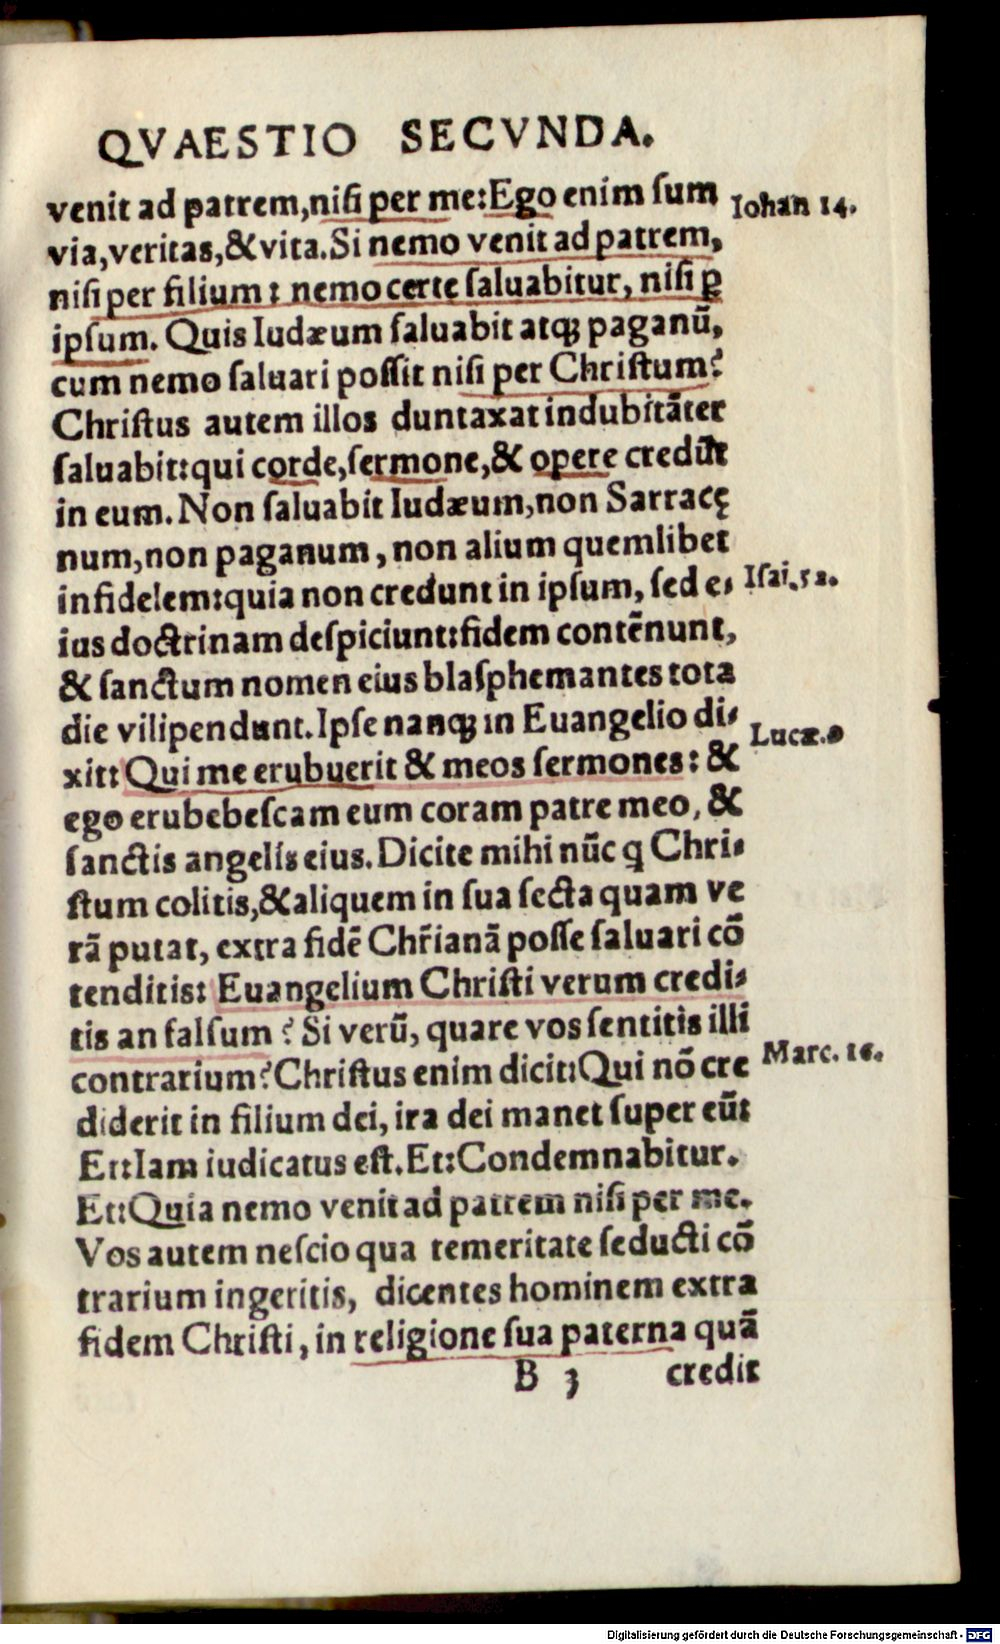 QVAESTIO SECVNDA.
venit ad patrem, nisi per me: Ego enim sum
Iohan 14.
via, veritas, & vita. Si nemo venit ad patrem,
nisi per filium: nemo certe saluabitur, nisi ꝑ
ipsum. Quis Iudæum saluabit atqꝫ paganū,
cum nemo saluari possit nisi per Christum?
Christus autem illos duntaxat indubitāter
saluabit: qui corde, sermone, & opere credūt
in eum. Non saluabit Iudæum, non Sarracę
num, non paganum, non alium quemlibet
infidelem: quia non credunt in ipsum, sed e-
Isai. 52.
ius doctrinam despiciunt: fidem contēnunt,
& sanctum nomen eius blasphemantes tota
die vilipendunt. Ipse nanqꝫ in Euangelio di-
Lucæ.
xit: Qui me erubuerit & meos sermones: &
ego erubebescam eum coram patre meo, &
sanctis angelis eius. Dicite mihi nūc q Chri-
stum colitis, & aliquem in sua secta quam ve
rā putat, extra fidē Chr̄ianā posse saluari cō
tenditis: Euangelium Christi verum credi-
tis an falsum? Si verū, quare vos sentitis illi
contrarium? Christus enim dicit: Qui nō cre
Marc. 16.
diderit in filium dei, ira dei manet super eū:
Et: Iam iudicatus est. Et: Condemnabitur.
Et: Quia nemo venit ad patrem nisi per me.
Vos autem nescio qua temeritate seducti cō
trarium ingeritis, dicentes hominem extra
fidem Christi, in religione sua paterna quā
B 3 credit
Digitalisierung gefördert durch die Deutsche Forschungsgemeinschaft - DFG